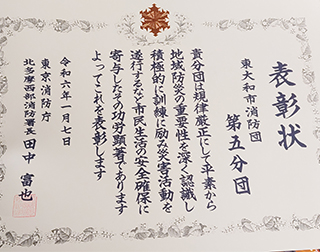 表彰状
東大和市消防団
第五分団
貴分団は規律厳正にして平素から
地域防災の重要性を深く認識し
積極的に訓練に励み災害活動を
遂行するなど市民生活の安全確保に
寄与したその功労顕著であります
よってこれを表彰します
令和六年一月七日
東京消防庁
北多摩西部消防署長 田中富也